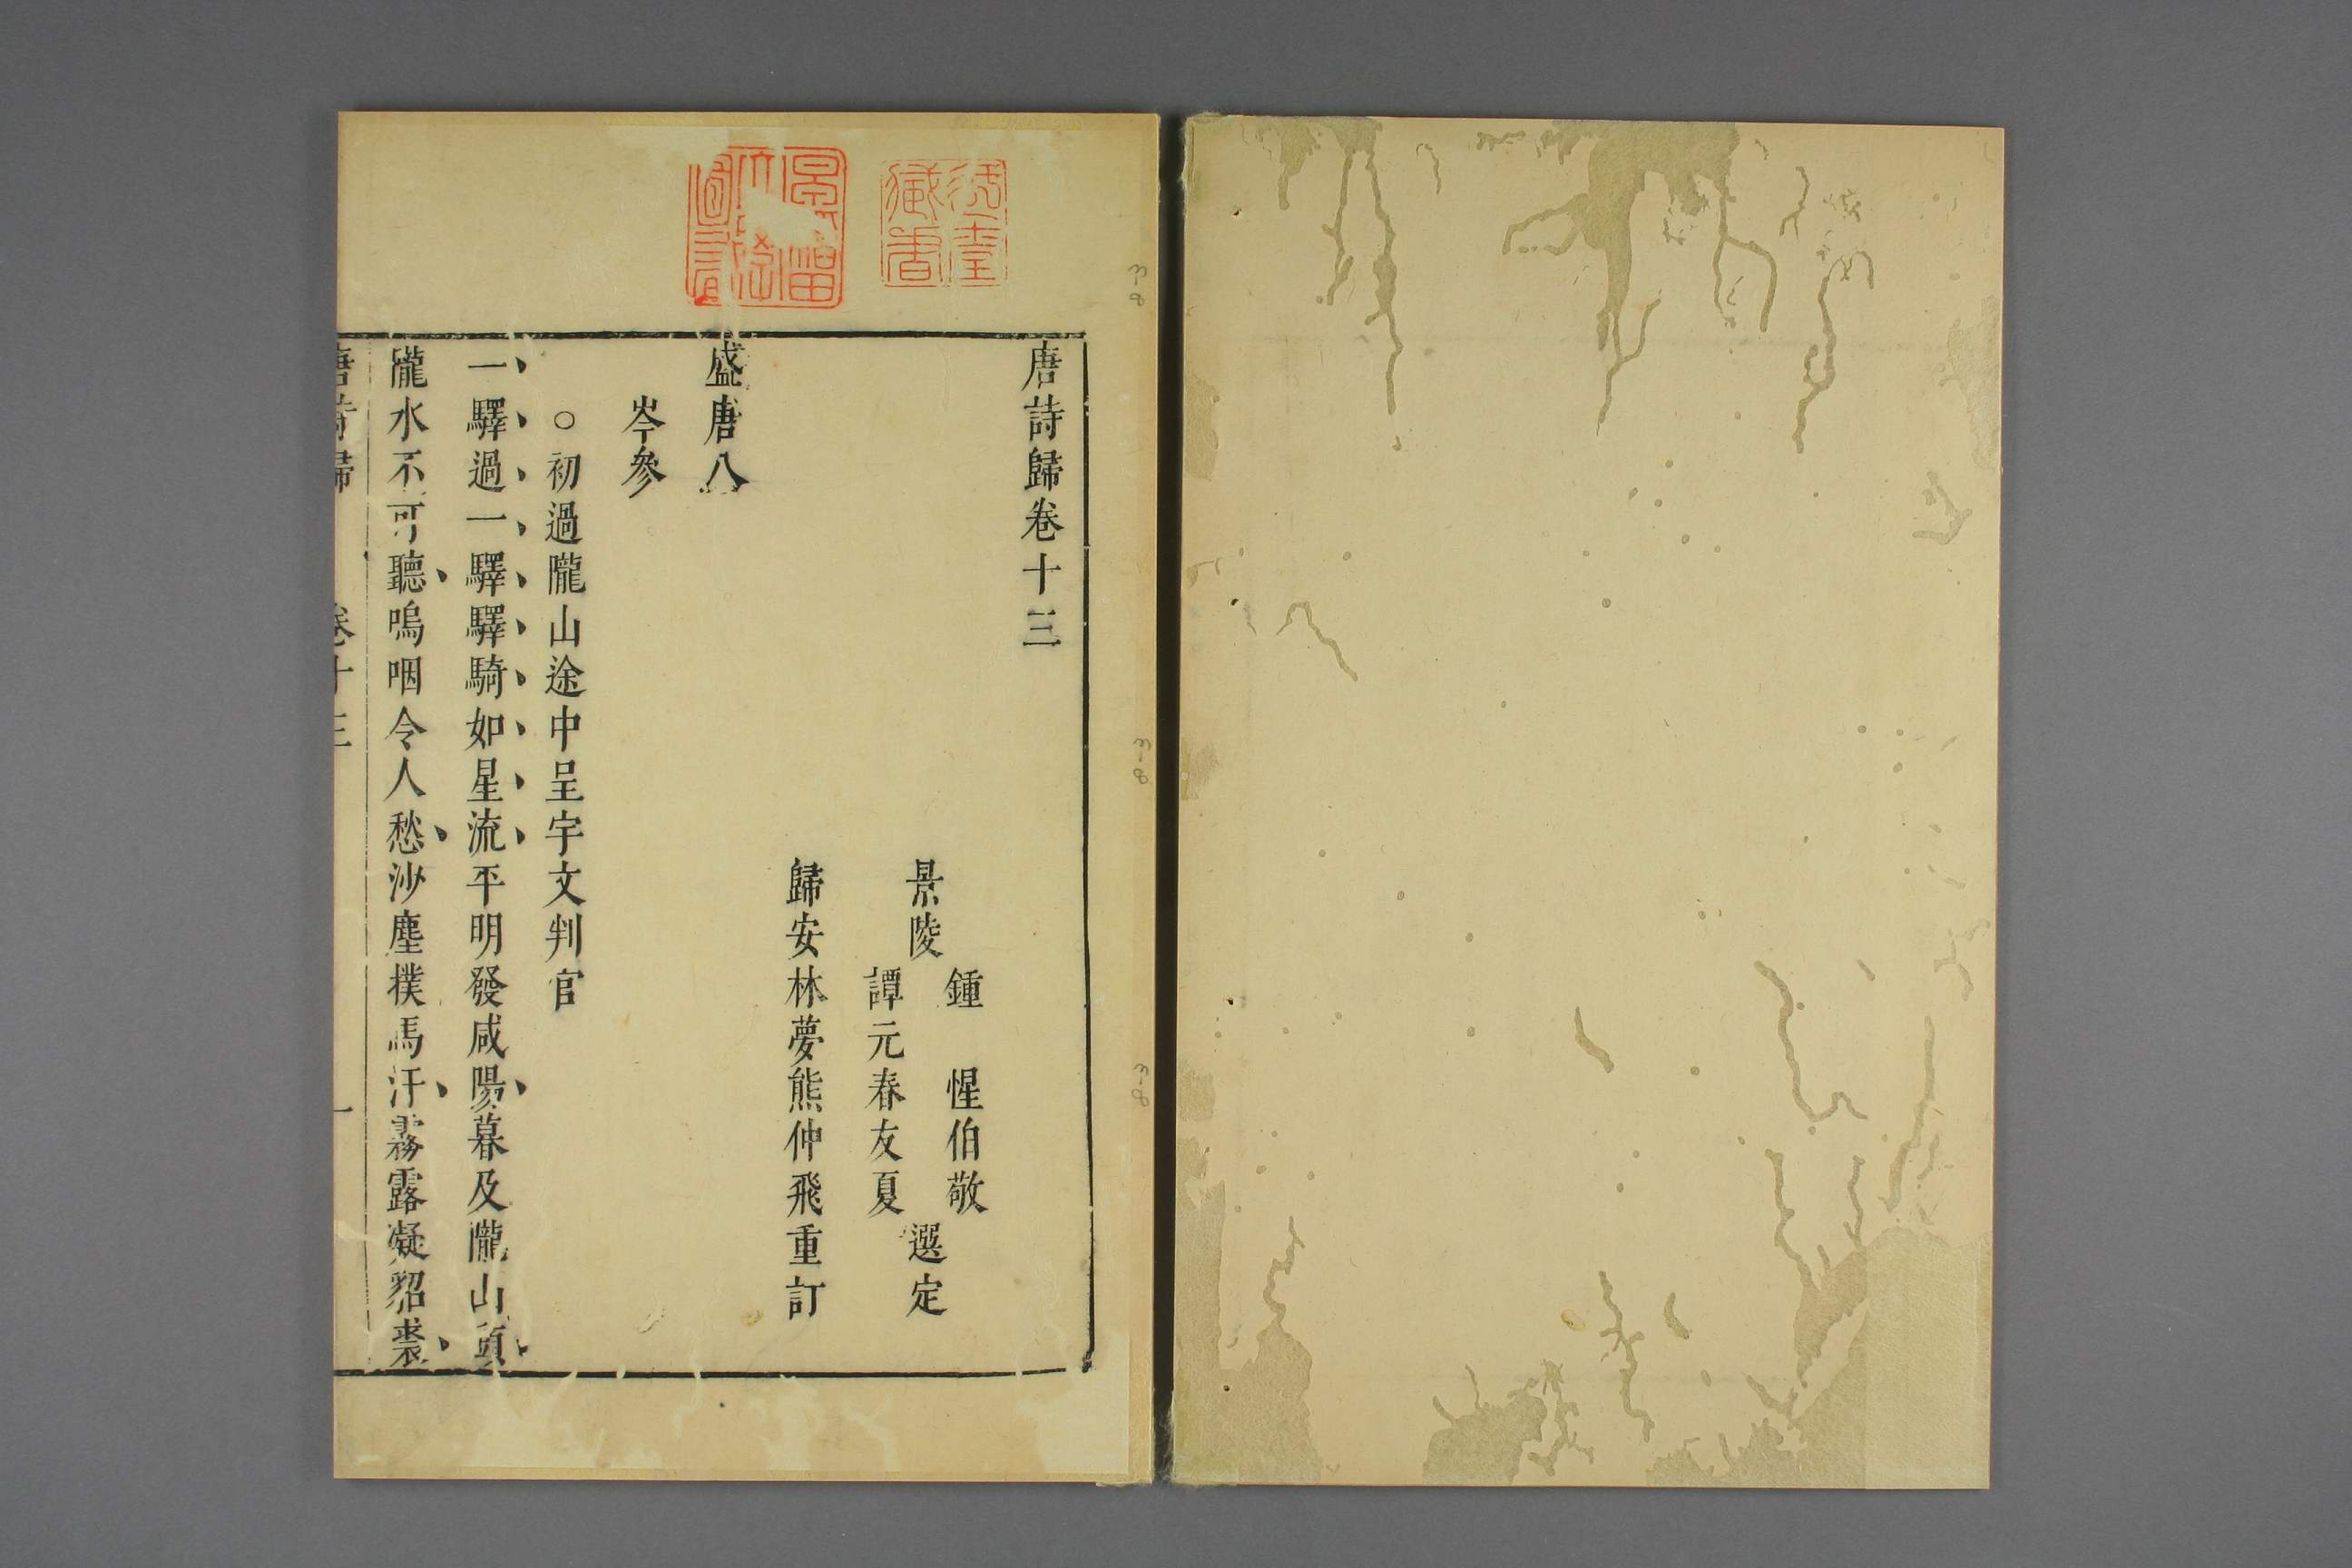 唐詩歸卷十三
景陵
鍾惺伯敬
譚元春友夏
選定
歸安林夢熊仲飛重訂
盛唐八
岑參
○初過隴山途中呈宇文判官
一驛過一驛驛騎如星流平明發咸陽暮及隴山頭
隴水不可聽嗚咽令人愁沙塵撲馬汗霧露凝貂裘
唐詩歸 卷十三 一
藏書